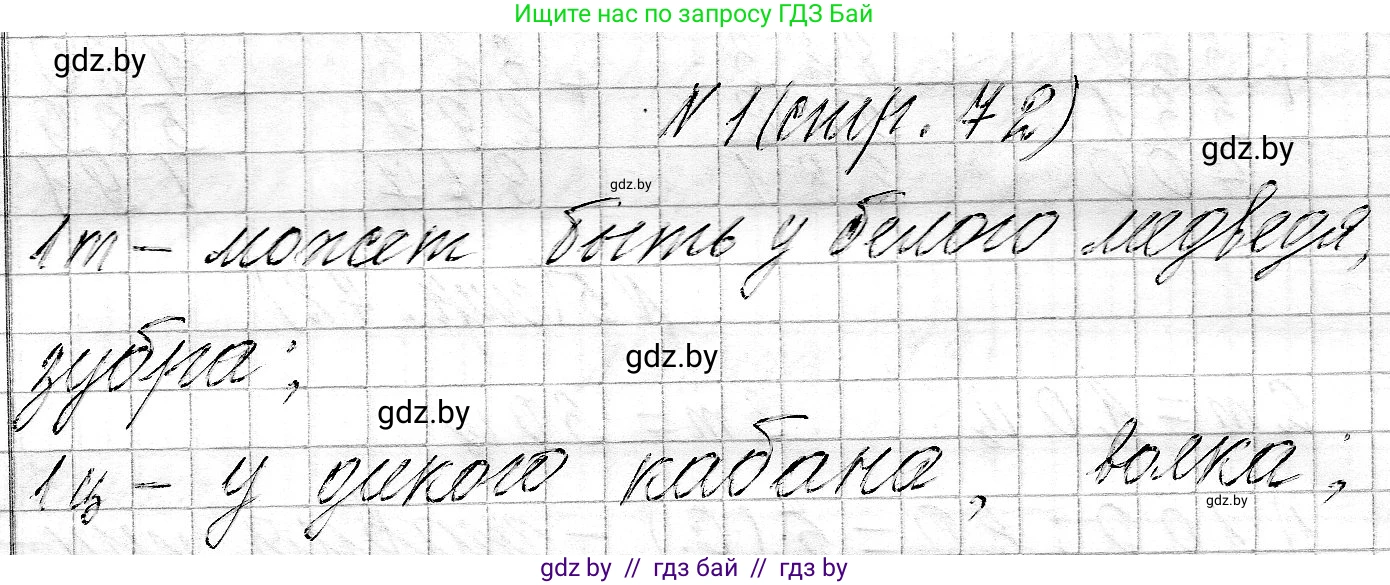 Ищите нас по запросу ГДЗ Бай
gdz.by
N 1 (стр. 72)
gdz.by
gdz.by
1т – может быть у белого медведя,
зубра;
gdz.by
gdz.by
1ц – у дикого кабана, волка;
gdz.by
gdz.by // гдз бай // gdz by